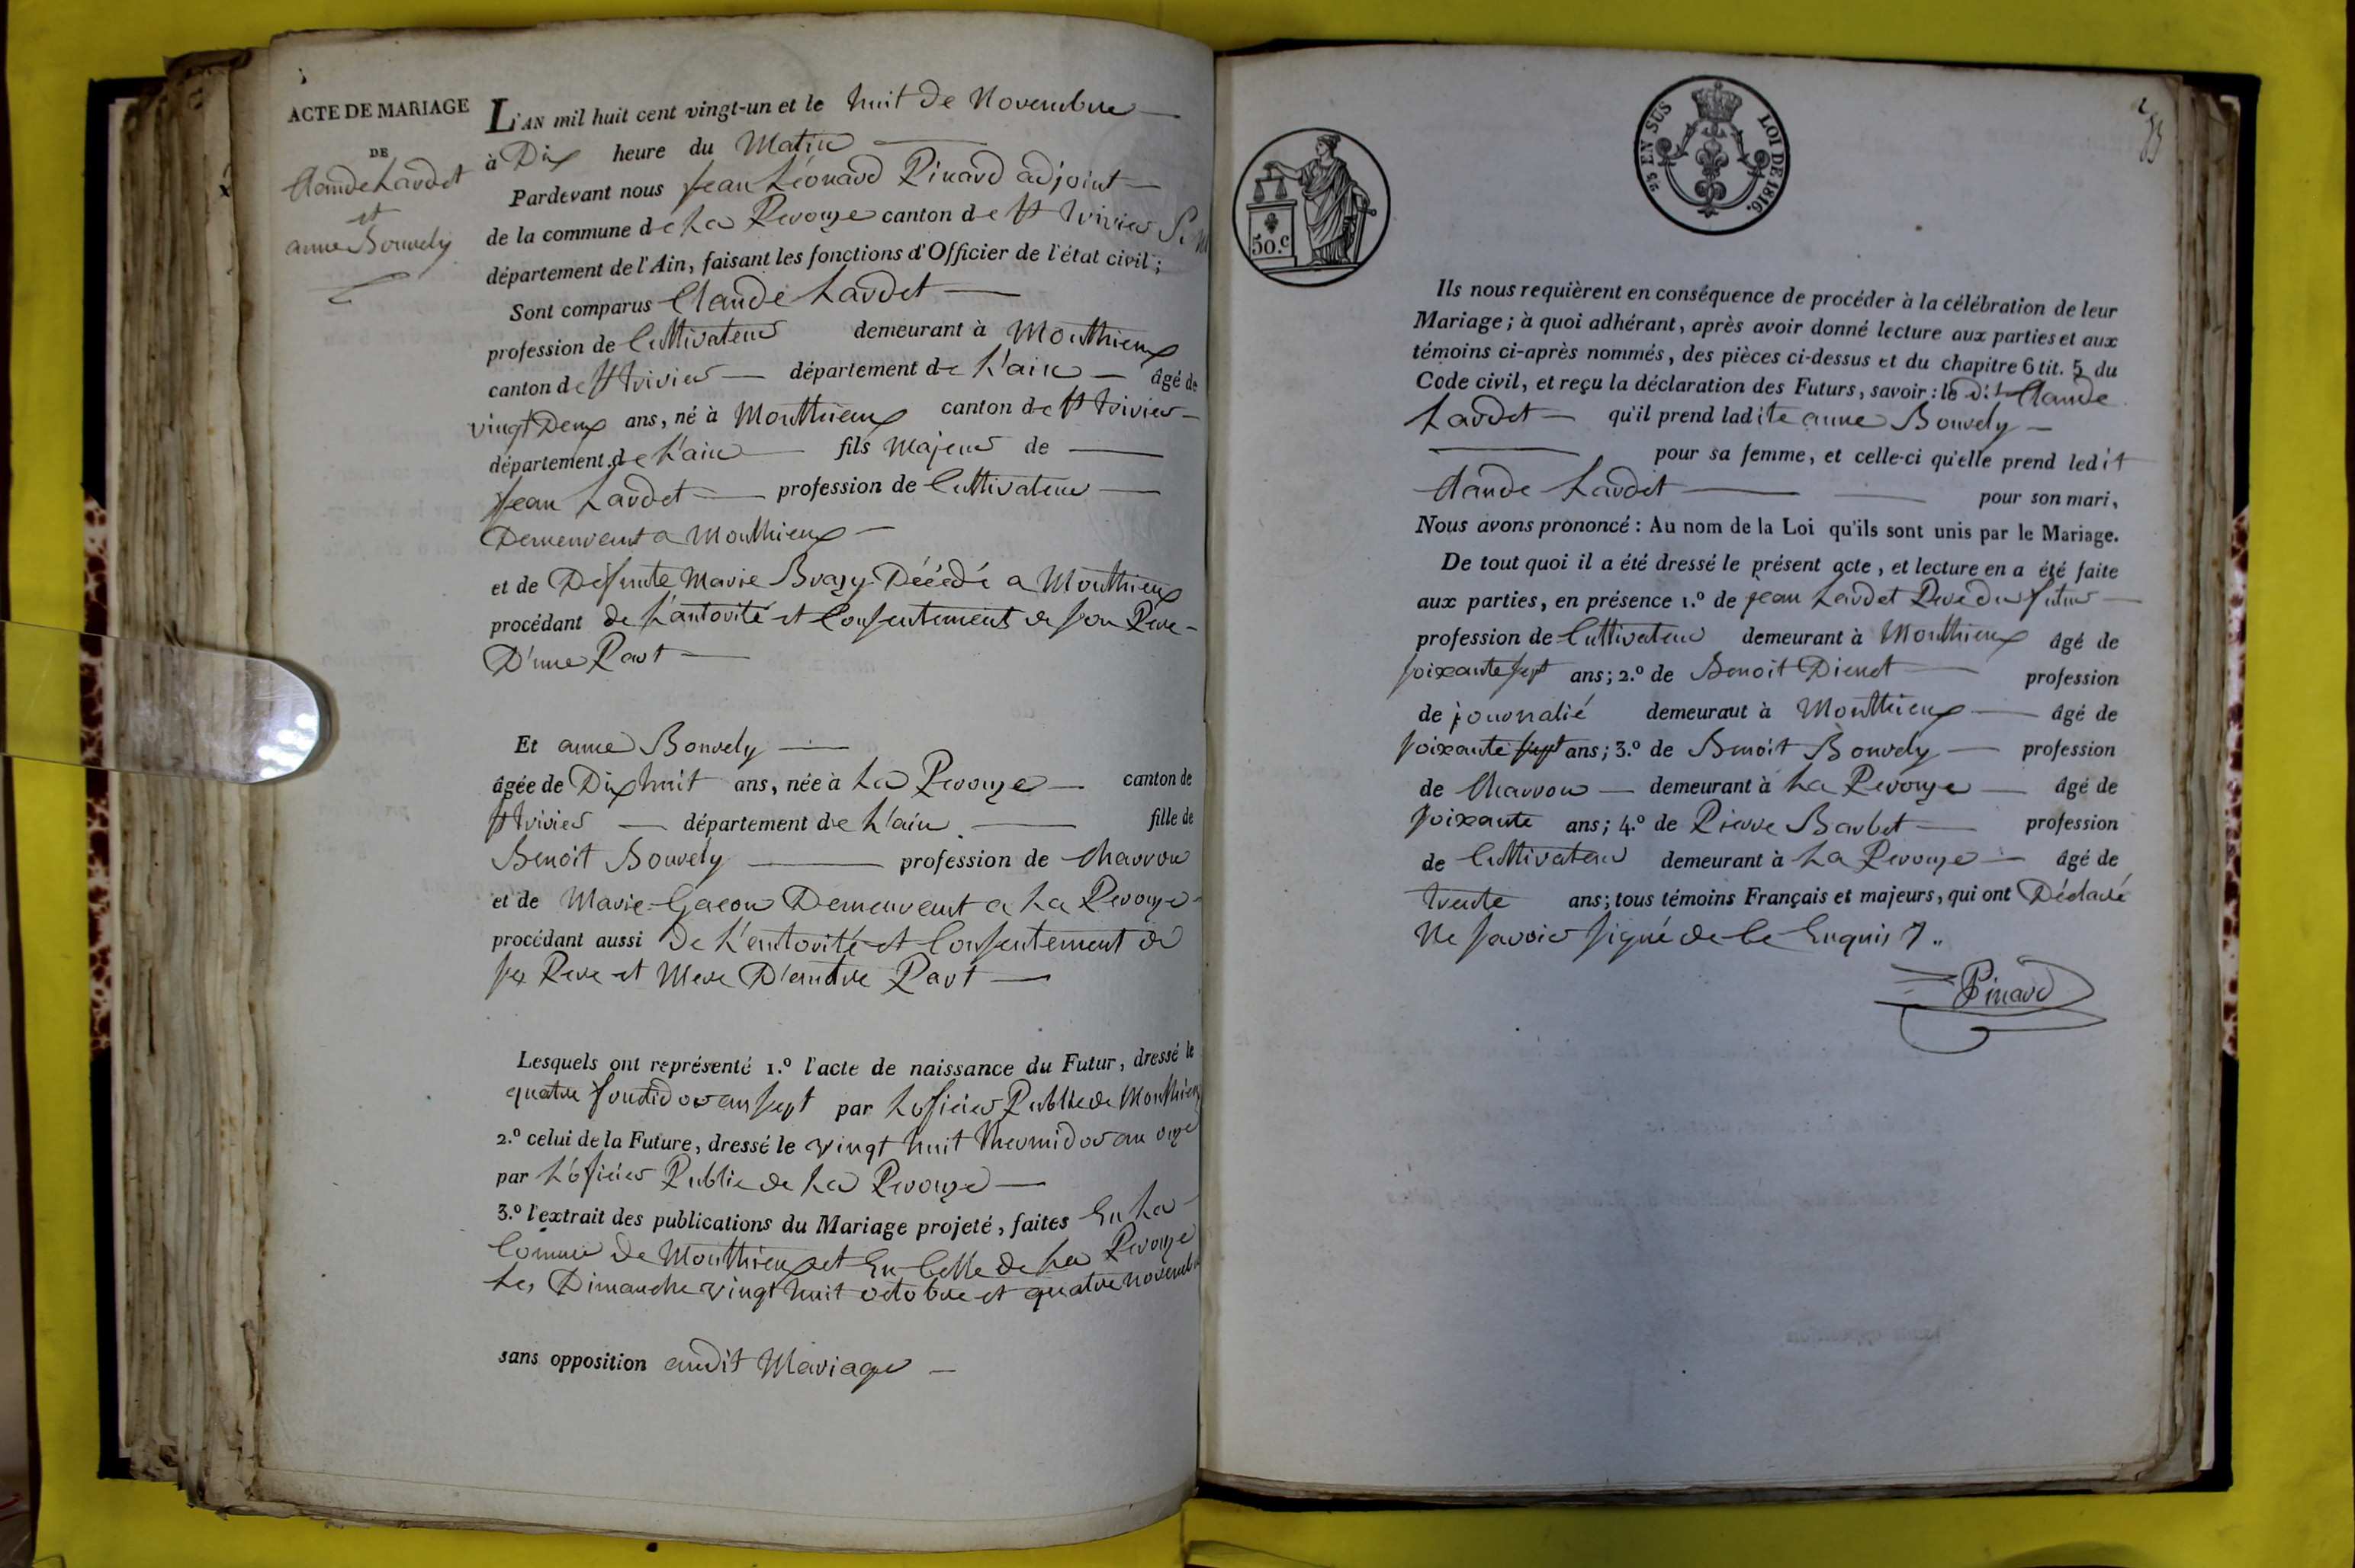 ACTE DE MARIAGE
DE
Claude Lardet
et
anne Bouvely
L'AN mil huit cent vingt-un et le huit de Novembre
à Dix heure du Matin
Pardevant nous Jean Léonard Pinard adjoint
de la commune de La Perouze canton de St trivier
département de l'Ain, faisant les fonctions d'Officier de l'état civil ;
Sont comparus Claude Lardet
profession de Cultivateur demeurant à Monthieux
canton de St trivier département de L'ain âgé de
vingt Deux ans, né à Monthieux canton de St trivier
département de L'ain fils Majeur de
Jean Lardet profession de Cultivateur
Demeurant a Monthieux
et de Defunte Marie Brazy Décédé a Monthieux
procédant de L'autorité et Consentement de son Pere
D'une Part
Et anne Bouvely
âgée de Dix huit ans, née à La Perouze canton de
St trivier département de L'ain fille de
Benoit Bouvely profession de Charron
et de Marie Gacon Demeurant a La Perouze
procédant aussi de L'autorité et Consentement de
ses Pere et Mere D'autre Part
Lesquels ont représenté 1.º l'acte de naissance du Futur, dressé le
quatre fructidor an sept par Loficier Public de Monthieux
2.º celui de la Future, dressé le vingt huit thermidor an onze
par L'oficier Public de La Perouze
3.º l'extrait des publications du Mariage projeté, faites En La
Commune de Monthieux et En Celle de La Perouze
Les Dimanche vingt huit octobre et quatre novembre
sans opposition audit Mariage
50.c
25 EN SUS LOI DE 1816.
Ils nous requièrent en conséquence de procéder à la célébration de leur
Mariage ; à quoi adhérant, après avoir donné lecture aux parties et aux
témoins ci-après nommés, des pièces ci-dessus et du chapitre 6 tit. 5 du
Code civil, et reçu la déclaration des Futurs, savoir : le d.t Claude
Lardet qu'il prend ladite anne Bouvely
pour sa femme, et celle-ci qu'elle prend ledit
Claude Lardet pour son mari,
Nous avons prononcé : Au nom de la Loi qu'ils sont unis par le Mariage.
De tout quoi il a été dressé le présent acte, et lecture en a été faite
aux parties, en présence 1.º de Jean Lardet Pere du futur
profession de Cultivateur demeurant à Monthieux âgé de
soixante sept ans ; 2.º de Benoit Dienet profession
de journalié demeurant à Monthieux âgé de
soixante sept ans ; 3.º de Benoit Bouvely profession
de Charron demeurant à La Perouze âgé de
soixante ans ; 4.º de Pierre Barbet profession
de Cultivateur demeurant à La Perouze âgé de
trente ans ; tous témoins Français et majeurs, qui ont Déclaré
Ne savoir signé de Ce Enquis
Pinard